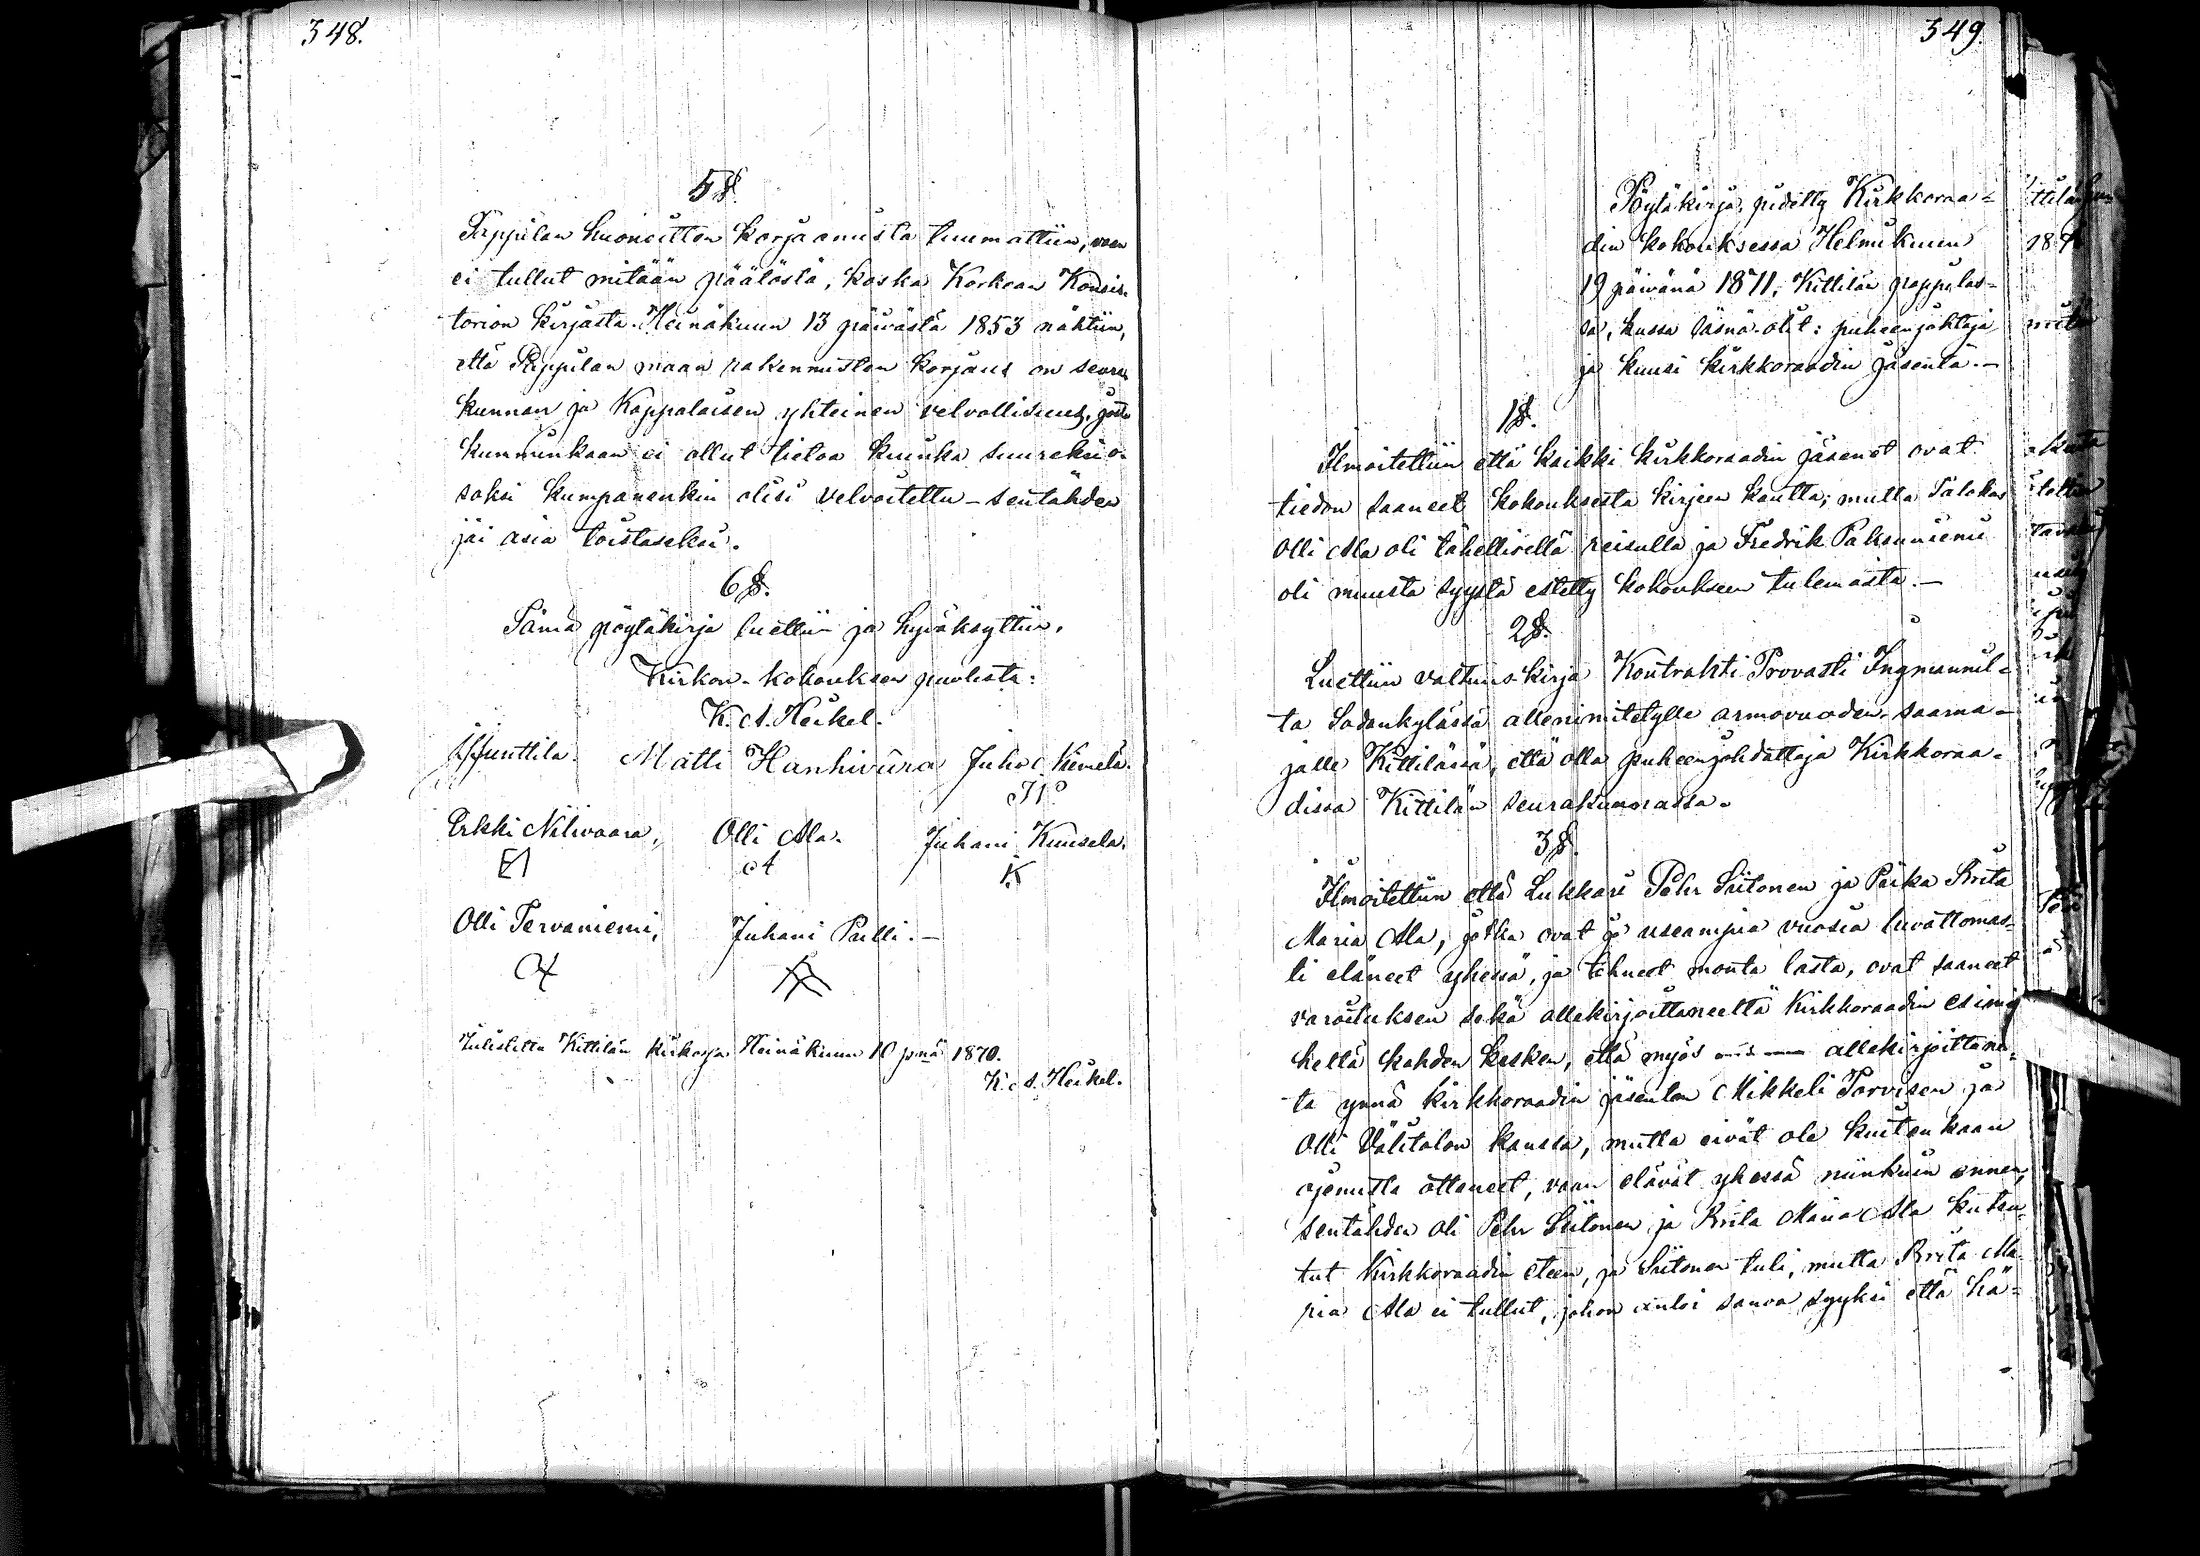 348.
5 §.
Pappilan huoneitten korjaamista tuumattiin, vaan
ei tullut mitään päälöstä, koska Korkean Konsis-
torion kirjasta Heinäkuun 13 päivästä 1853 nähtiin,
että Pappilan maan rakennusten korjaus on seura-
kunnan ja Kappalaisen yhteinen velvollisuus,
kummunkaan ei ollut tietoa kuinka suureksi o-
saksi kumpanenkin olisi velvoitettu – sentähden
jäi asia toistaseksi.
6 §.
Tämä pöytäkirja luettiin ja hyväksyttiin.
Kirkon-kokouksen puolesta:
K. A. Heikel.
Junttila. Matti Hanhivaara Juho Niemelä.
Erkki Nilivaara, Olli Ala. Juhani Kuusela.
E A K
Olli Tervaniemi, Juhani Pulli.–
Julistettu Kittilän kirkossa Heinäkuun 10 pnä 1870.
K. A. Heikel.
349.
Pöytäkirja, pidetty Kirkkoraa-
din kokouksessa Helmikuun
19 päivänä 1871, Kittilän pappilas-
sa, kussa läsnä olit: puheenjohtaja
ja kuusi kirkkoraadin jäsentä.–
1 §.
Ilmoitettiin että kaikki kirkkoraadin jäsenet ovat
tiedon saaneet kokouksesta kirjeen kautta; mutta Talokas
Olli Ala oli tähellisellä reisulla ja Fredrik Paksuniemi
oli muusta syystä estetty kokoukseen tulemasta.–
2 §.
Luettiin valtuus-kirja Kontrahti Provasti Ingmannil-
ta Sodankylässä allenimitetylle armovuoden-saarna-
jalle Kittilässä, että olla puheenjohdattaja Kirkkoraa-
dissa Kittilän seurakunnassa.
3 §.
Ilmoitettiin että Lukkari Pehr Siitonen ja Piika Brita
Maria Ala, jotka ovat jo useampia vuosia luvattomas-
ti eläneet yhessä, ja tehneet monta lasta, ovat saaneet
varoituksen sekä allekirjoittaneelta Kirkkoraadin esimie-
heltä kahden kesken, että myös allekirjoittane-
ta ynnä kirkkoraadin jäsenten Mikkeli Torvisen ja
Olli Välitalon kanssa, mutta eivät ole kuitenkaan
ojennusta ottaneet, vaan elävät yhessä niinkuin ennen,
sentähden oli Pehr Siitonen ja Brita Maria Ala kutsu-
tut Kirkkoraadin eteen, ja Siitonen tuli, mutta Brita Ma-
ria Ala ei tullut, johon antoi sanoa syyksi että hä-